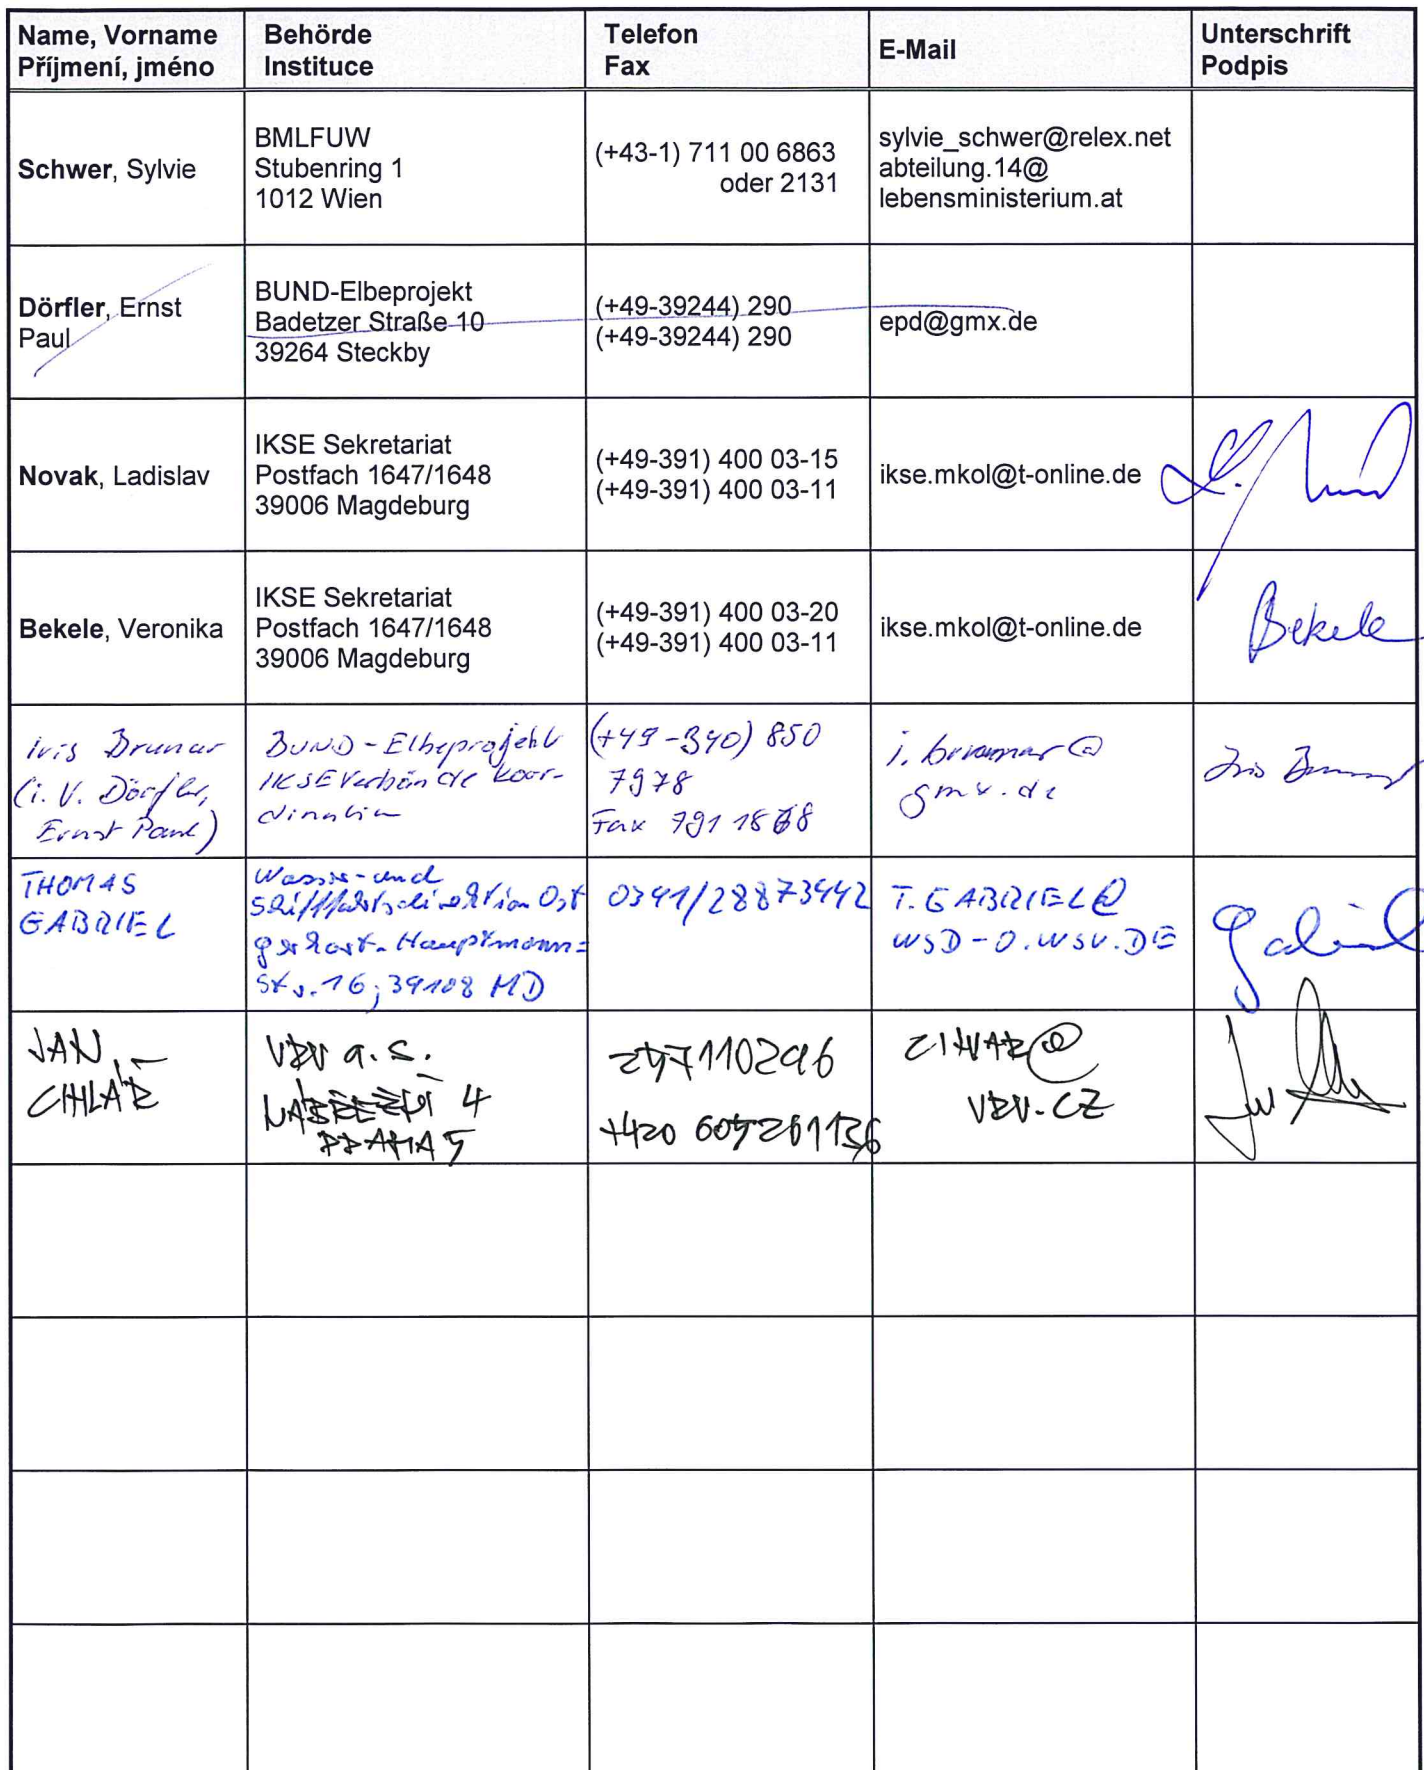 Name, Vorname
Příjmení, jméno
Behörde
Instituce
Telefon
Fax
E-Mail
Unterschrift
Podpis
Schwer, Sylvie
BMLFUW
Stubenring 1
1012 Wien
(+43-1) 711 00 6863
oder 2131
sylvie_schwer@relex.net
abteilung.14@
lebensministerium.at
Dörfler, Ernst
Paul
BUND-Elbeprojekt
Badetzer Straße 10
39264 Steckby
(+49-39244) 290
(+49-39244) 290
epd@gmx.de
Novak, Ladislav
IKSE Sekretariat
Postfach 1647/1648
39006 Magdeburg
(+49-391) 400 03-15
(+49-391) 400 03-11
ikse.mkol@t-online.de
Bekele, Veronika
IKSE Sekretariat
Postfach 1647/1648
39006 Magdeburg
(+49-391) 400 03-20
(+49-391) 400 03-11
ikse.mkol@t-online.de
Bekele
Iris Brunar
(i. V. Dörfler,
Ernst Paul)
BUND-Elbeprojekt
IKSE Verbände koor-
dination
(+49-340) 850
7978
Fax 791
gmx.de
Iris
THOMAS
GABRIEL
Wasser- und
Schifffahrtsdirektion Ost
Gerhart-Hauptmann-
Str. 16; 39108 MD
0391/28873442
T.GABRIEL@
WSD-O.WSV.DE
Gabriel
JAN
CIHLÁŘ
VRV a.s.
NÁBŘEŽNÍ 4
PRAHA 5
VRV.CZ